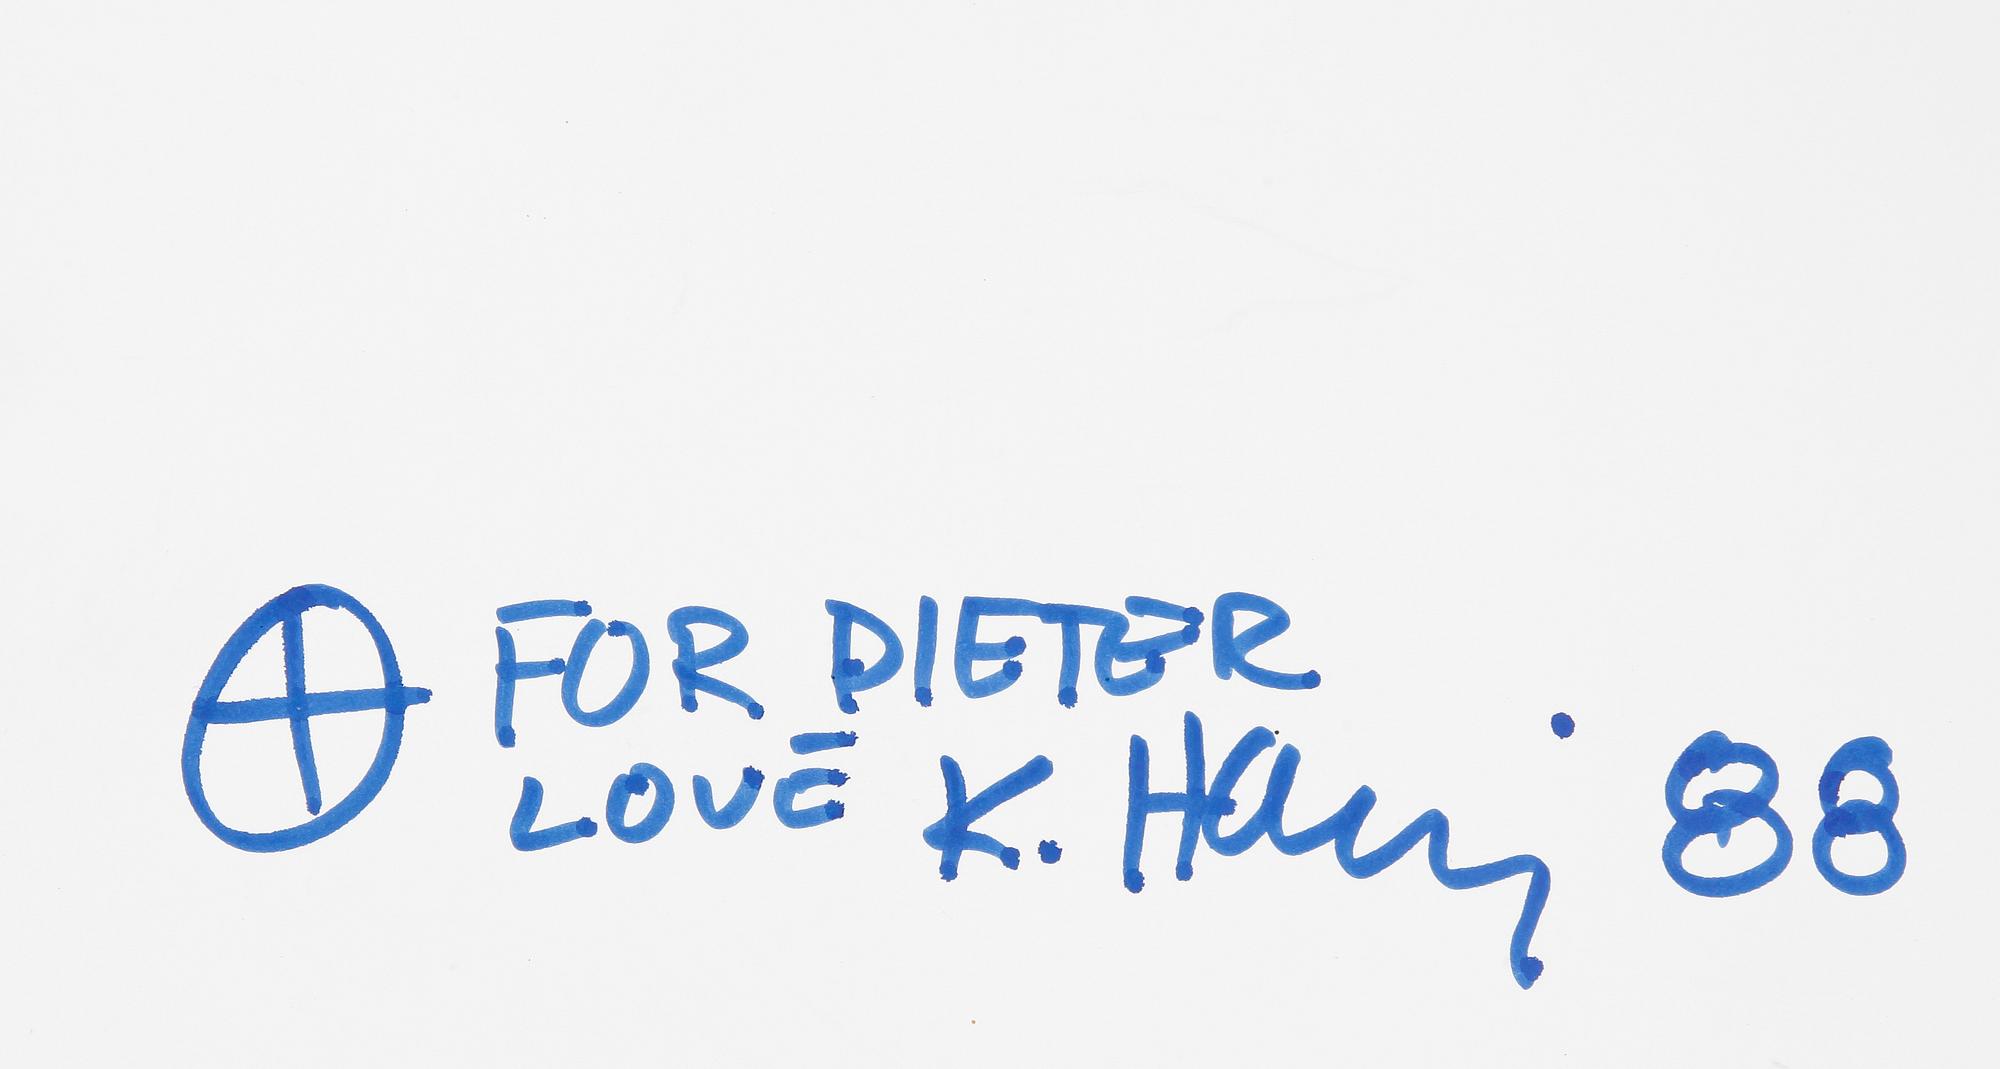 FOR DIETER
LOVE K. Hari 88